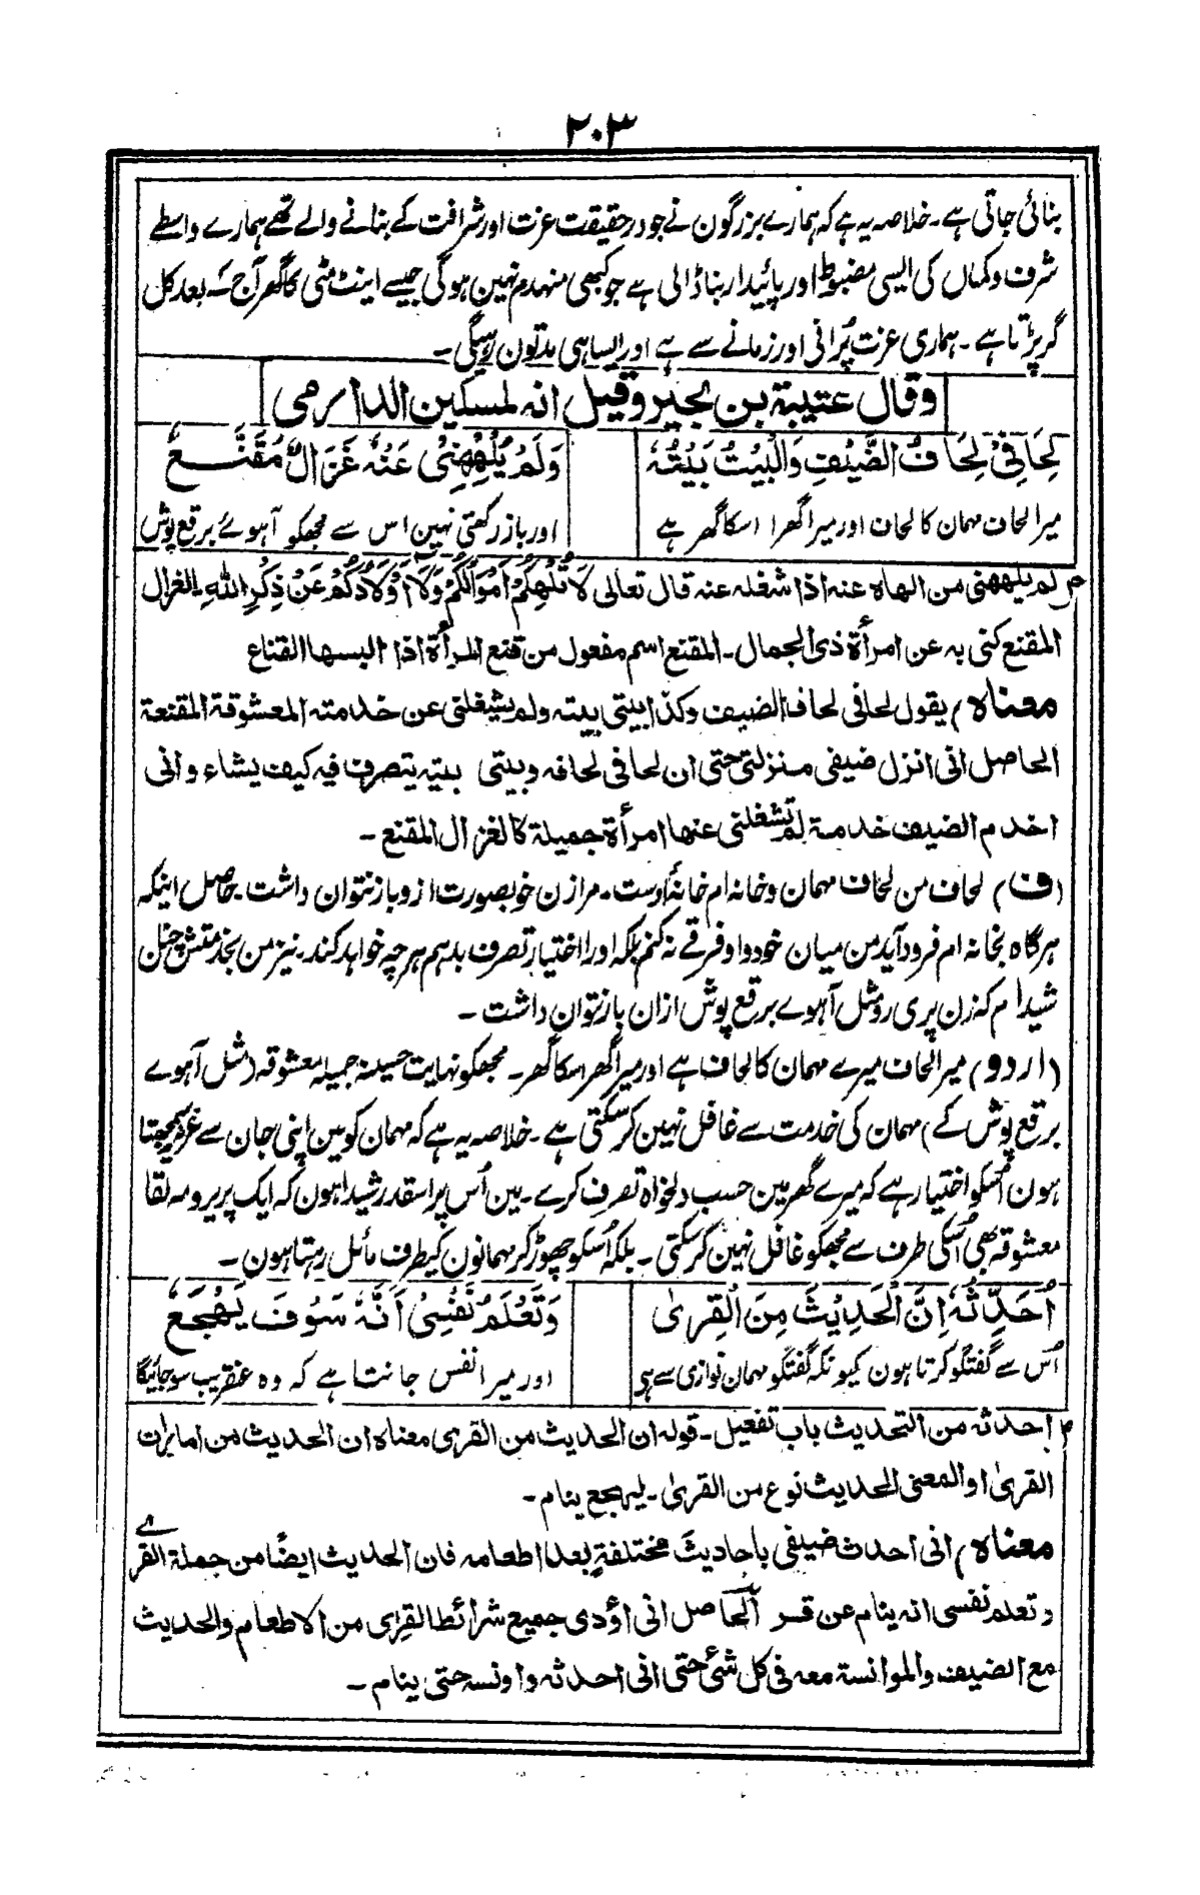 ۲۰۳
بنائی جاتی ہے۔ خلاصہ یہ ہے کہ ہمارے بزرگون نے جو درحقیقت عزت اور شرافت کے بنانے والے تھے ہمارے واسطے
شرف وکماں کی ایسی مضبوط اور پائیدار بنا ڈالی ہے جو کبھی منہدم نہین ہوگی جیسے اینٹ مٹی کا گھر آج کے بعد کل
گر پڑتا ہے۔ ہماری عزت پُرانی اور زمانے سے ہے اور ایسا ہی مدتون رہیگی۔
وقال عتیبة بن بجیر وقیل انه لمسکین الدارمی
لِحَافِیْ لِحَافُ الضَّیْفِ وَالْبَیْتُ بَیْتُہٗ
وَلَمْ یُلْهِنِیْ عَنْہُ غَزَالٌ مُقَنَّعٌ
میرا لحاف مہمان کا لحاف اور میرا گھر اسکا گھر ہے
اور باز رکھتی نہین اس سے مجھکو آہوئے برقع پوش
م لم یلهنی من الهاه عنه اذا شغله عنه قال تعالی لَا تُلْهِكُمْ اَمْوَالُكُمْ وَلَا اَوْلَادُكُمْ عَنْ ذِكْرِ اللهِ۔ الغزال
المقنع کنی به عن امرأة ذی الجمال۔ المقنع اسم مفعول من قنع المرأة اذا البسها القناع
معناہ) یقول لحافی لحاف الضیف وکذا بیتی بیته ولم یشغلنی عن خدمته المعشوقة المقنعة
الحاصل انی انزل ضیفی منزلتی حتی ان لحافی لحافه وبیتی بیته یتصرف فیه کیف یشاء وانی
اخدم الضیف خدمة لم تشغلنی عنها امرأة جمیلة کالغزال المقنع۔
(ف) لحاف من لحاف مہمان وخانہ ام خانۂ اوست۔ مرا زن خوبصورت ازو باز نتوان داشت۔ حاصل اینکہ
ہرگاہ بخانہ ام فرود آید من میان خود واو فرقے نہ کنم بلکہ اورا اختیار تصرف بدہم ہرچہ خواہد کند۔ نیز من بخدمتش چنان
شیدا ام کہ زن پری رو مثل آہوے برقع پوش ازان باز نتوان داشت۔
(اردو) میرا لحاف میرے مہمان کا لحاف ہے اور میرا گھر اسکا گھر۔ مجھکو نہایت حسینہ جمیلہ معشوقہ (مثل آہوے
برقع پوش کے) مہمان کی خدمت سے غافل نہین کرسکتی ہے۔ خلاصہ یہ ہے کہ مہمان کو مین اپنی جان سے عزیز سمجھتا
ہون اُسکو اختیار ہے کہ میرے گھر مین حسب دلخواہ تصرف کرے۔ مین اُس پر اسقدر شیدا ہون کہ ایک پریرو مہ لقا
معشوقہ بھی اُسکی طرف سے مجھکو غافل نہین کرسکتی۔ بلکہ اُسکو چھوڑ کر مہمانون کیطرف مائل رہتا ہون۔
اُحَدِّثُہٗ اِنَّ الْحَدِیْثَ مِنَ الْقِرٰی
وَتَعْلَمُ نَفْسِیْ اَنَّہٗ سَوْفَ یَهْجَعُ
اُس سے گفتگو کرتا ہون کیونکہ گفتگو مہمان نوازی سے ہی
اور میرا نفس جانتا ہے کہ وہ عنقریب سوجائیگا
م احدثه من التحدیث باب تفعیل۔ قوله ان الحدیث من القری معناه ان الحدیث من امارات
القریٰ او المعنی الحدیث نوع من القریٰ۔ لیهجع ینام۔
معناہ) انی احدث ضیفی باحادیثَ مختلفةٍ بعد اطعامه فان الحدیث ایضًا من جملة القرے
وتعلم نفسی انه ینام عن قسر الحاصل انی اؤدی جمیع شرائط القرٰی من الاطعام والحدیث
مع الضیف والموانسة معه فی کل شیٔ حتی انی احدثه واونسه حتی ینام۔